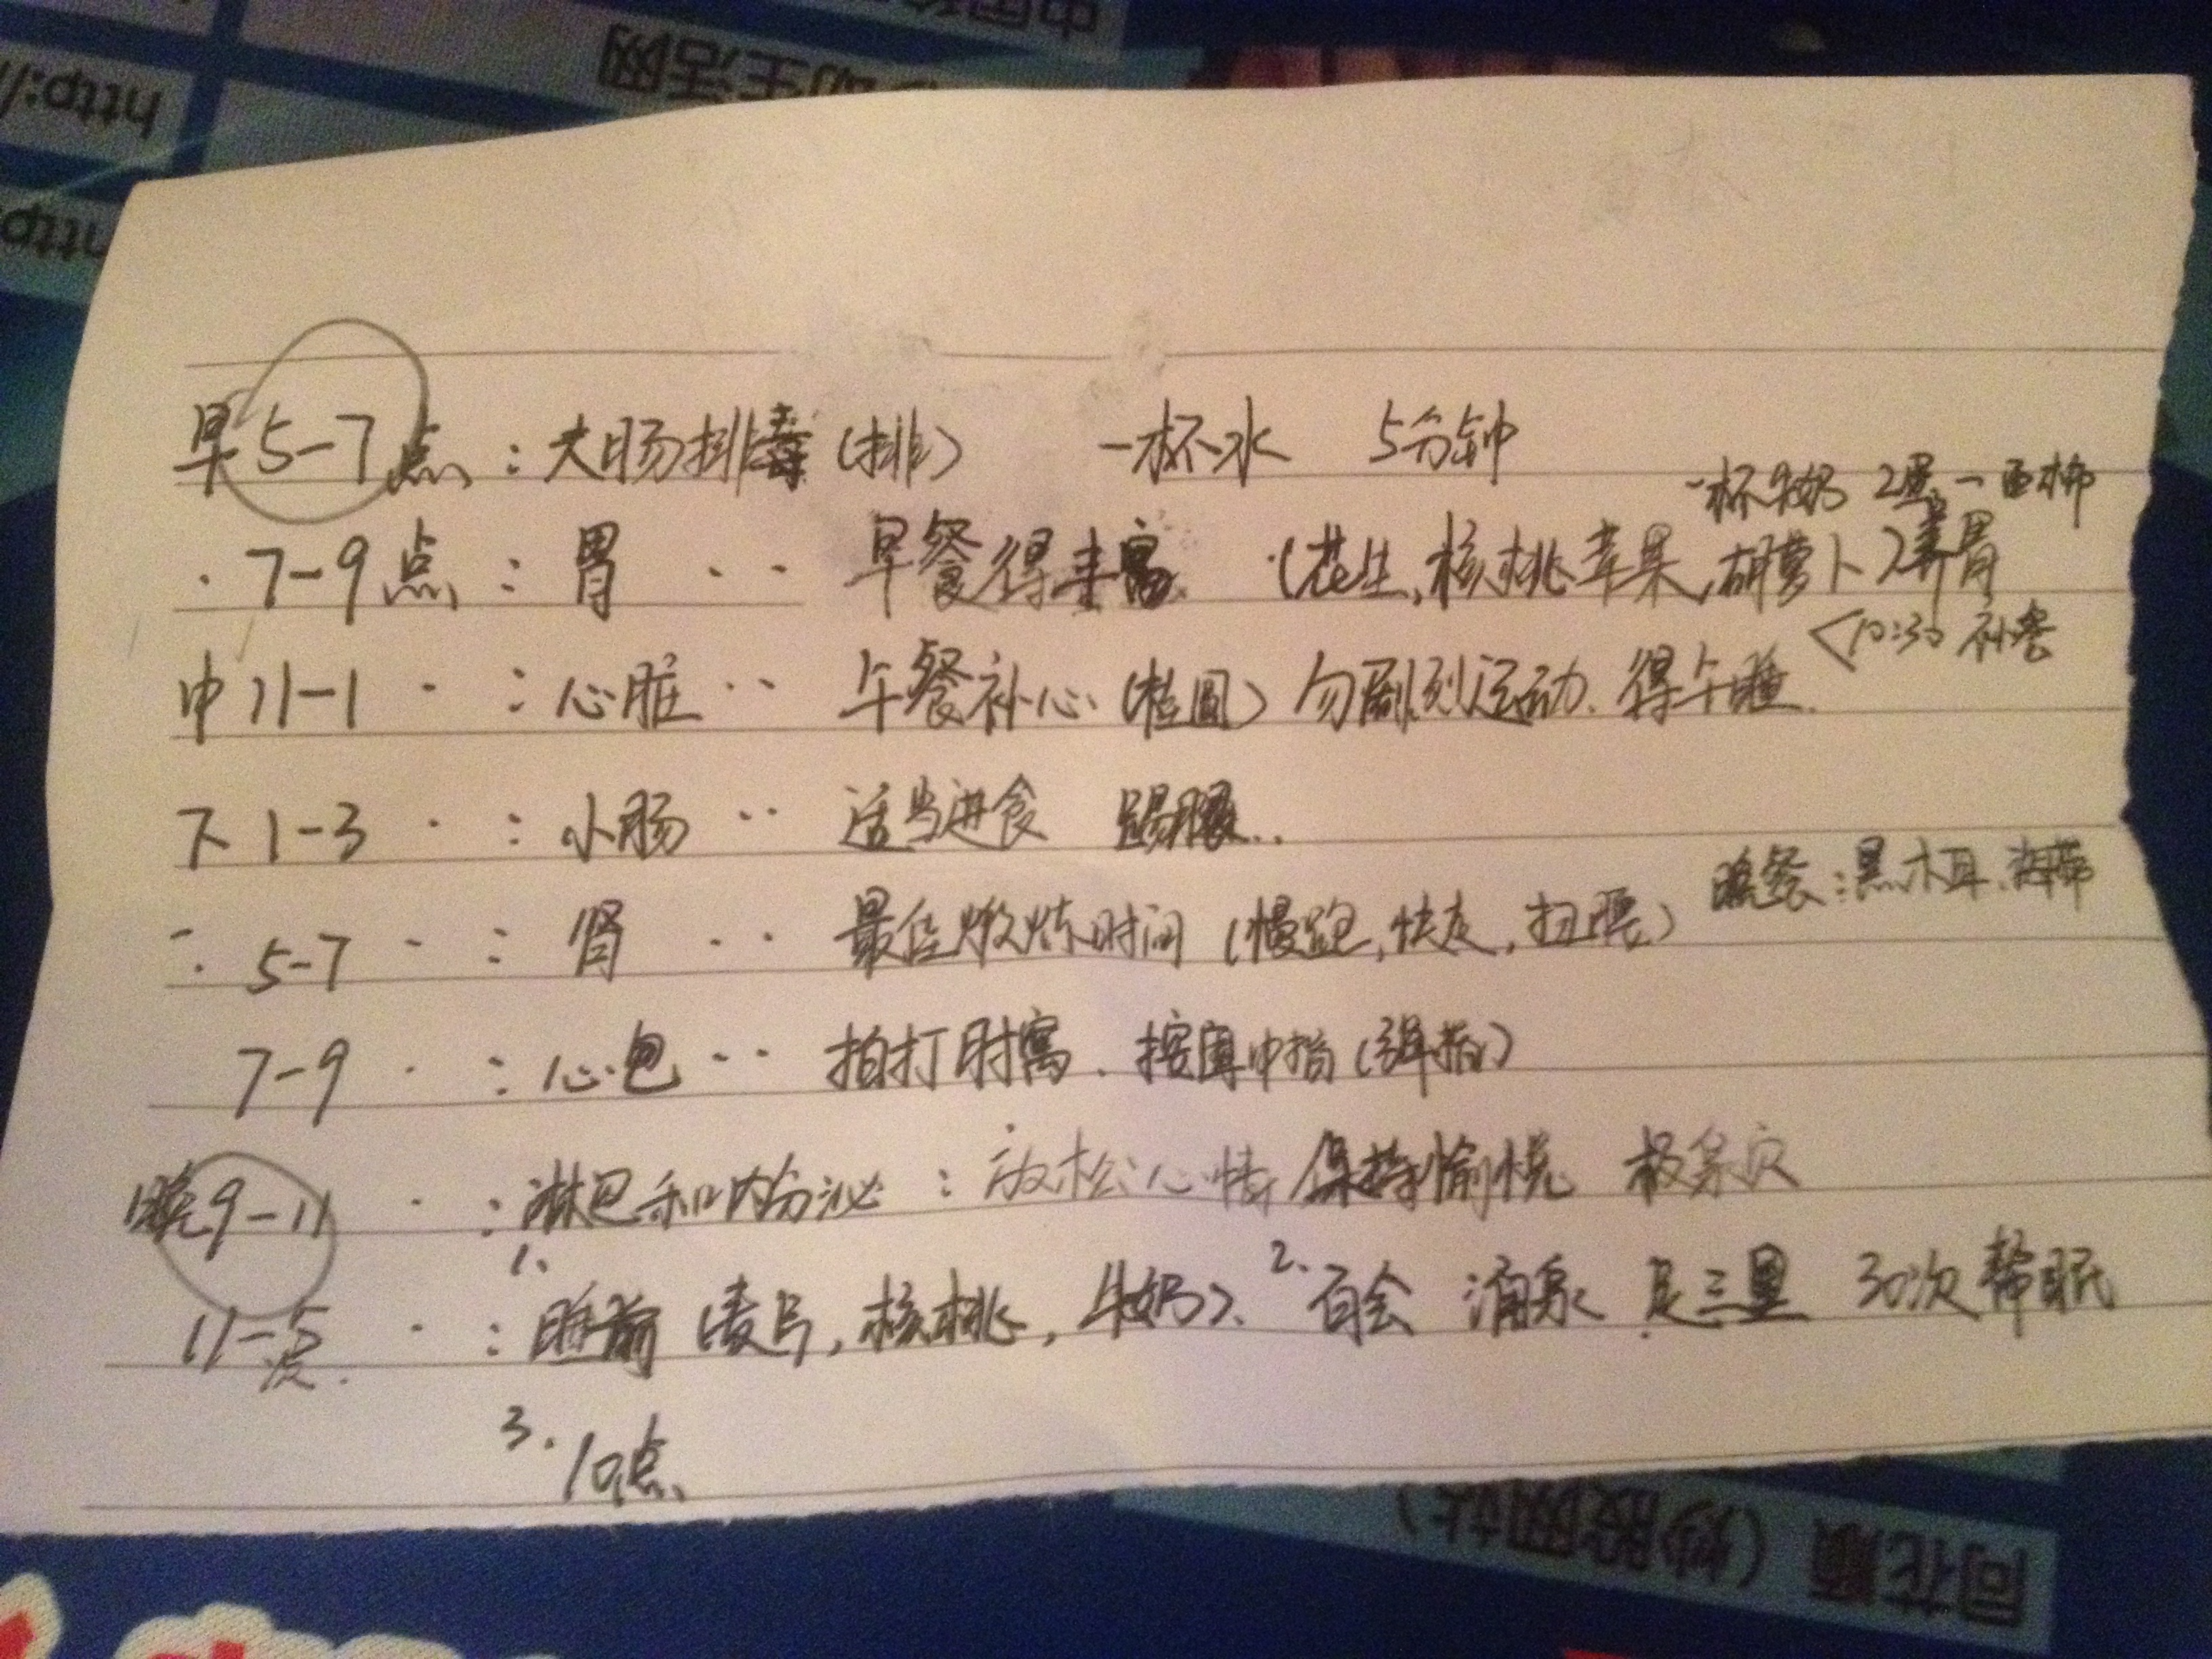 中国
助生活网
http:/
http
早5-7点：大肠排毒(排) 一杯水 5分钟
一杯牛奶 2蛋、一西柿
·7-9点：胃 ·· 早餐得丰富 (花生,核桃苹果,胡萝卜)养胃
<10:30 补餐
中11-1 ·：心脏 ·· 午餐补心(桂圆) 勿剧烈运动.得午睡.
下1-3 ·：小肠 ·· 适当进食 踢腿..
晚餐：黑木耳、
5-7 ·：肾 ·· 最佳煅炼时间(慢跑,快走,扭腰)
7-9 ·：心包 ·· 拍打肘窝.按摩中指(弹指)
晚9-11 ·：淋巴和内分泌：放松心情 保持愉悦
11-5 ·：1.睡前(麦片,核桃,牛奶)、2.百会 涌泉 足三里 30次帮眠
点.
3.10点
同花顺(炒股网站)